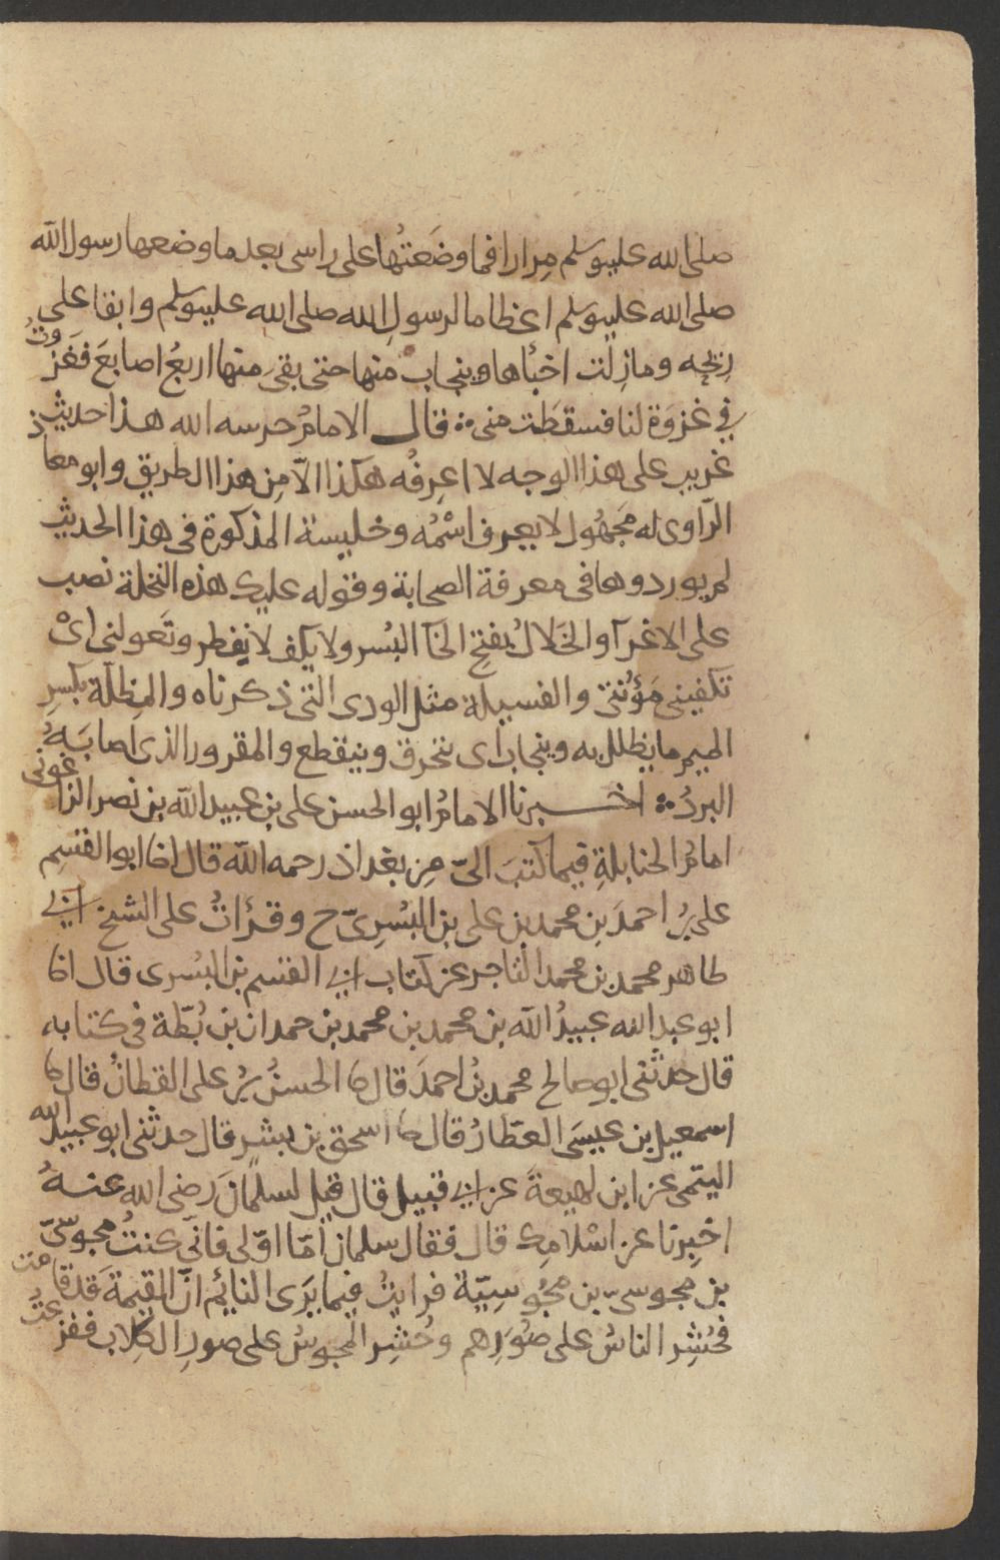 صلى الله عليه وسلم مِرارا فما وضَعتُها على راسى بعد ما وضعها رسول الله
صلى الله عليه وسلم اعظاما لرسولِ الله صلى الله عليه وسلم وابقا على
رِيْحه وما زِلت اخبُأها وينجاب منها حتى بقىَ منها اربعُ اصابعَ فغَزَوتُ
فى غزوَة لنا فسقطَت منى ؞ قال الامامُ حرسه الله هذا حديث
غريب على هذا الوجه لا اعرِفُه هكذا الّا مِن هذا الطريق وابو معاذ
الرّاوى له مَجهُول لا يعرف اسْمُه وخليسة المذكورة فى هذا الحديث
لم يوردوها فى معرفة الصحابة وقوله عليك هذه النخلة نصب
على الاغرآ والخَلالُ بفتحِ الخَآ البُسر ولا يكف لا يقطر وتَعولنى اىْ
تكفينى مَؤُنتى والفسيلة مثل الودى التى ذكرناه والمِظلّة بكسرِ
الميم ما يظلل به وينجاب اى يتخرق وينقطع والمقرور الذى اصابَهُ
البردُ ؞ اخبرنا الامامُ ابو الحسن على بن عبيد الله بن نصر الزاغونى
امامُ الحنابلةِ فيما كتبَ الىّ مِن بغداذ رحمه الله قال انا ابو القسِم
على بنُ احمدَ بنِ محمد بن على بن البُسْرِىّ ح وقرْاتُ على الشيخ ابى
طاهر محمد بن محمد التاجر عن كتاب ابى القسم بن البُسرى قال انا
ابو عبد الله عبيدُ الله بن محمد بن محمد بن حمدان بن بُطّة فى كتابه
قال حدثنى ابو صالح محمد بنُ احمدَ قال ثنا الحسنُ بنُ على القطانُ قال ثنا
اسمعيل بن عيسَى العطارُ قال ثنا اسحق بن بشرٍ قال حدثنى ابو عبيد الله
التيمى عن ابن لهيعةَ عن ابى قبيل قال قيل لسلمانَ رضى الله عنهُ
اخبِرنا عن اسْلامِك قال فقال سلمان امّا اوّلى فانّى كنتُ مجوسىّ
بن مجوسىّ بن مجُوسِيّة فرايتُ فيما يَرَى النائم انّ القيمةَ قد قامت
فحُشِر الناسُ على صُوَرِهم وحُشِر المجوسُ على صورِ الكِلاب ففزعتُ